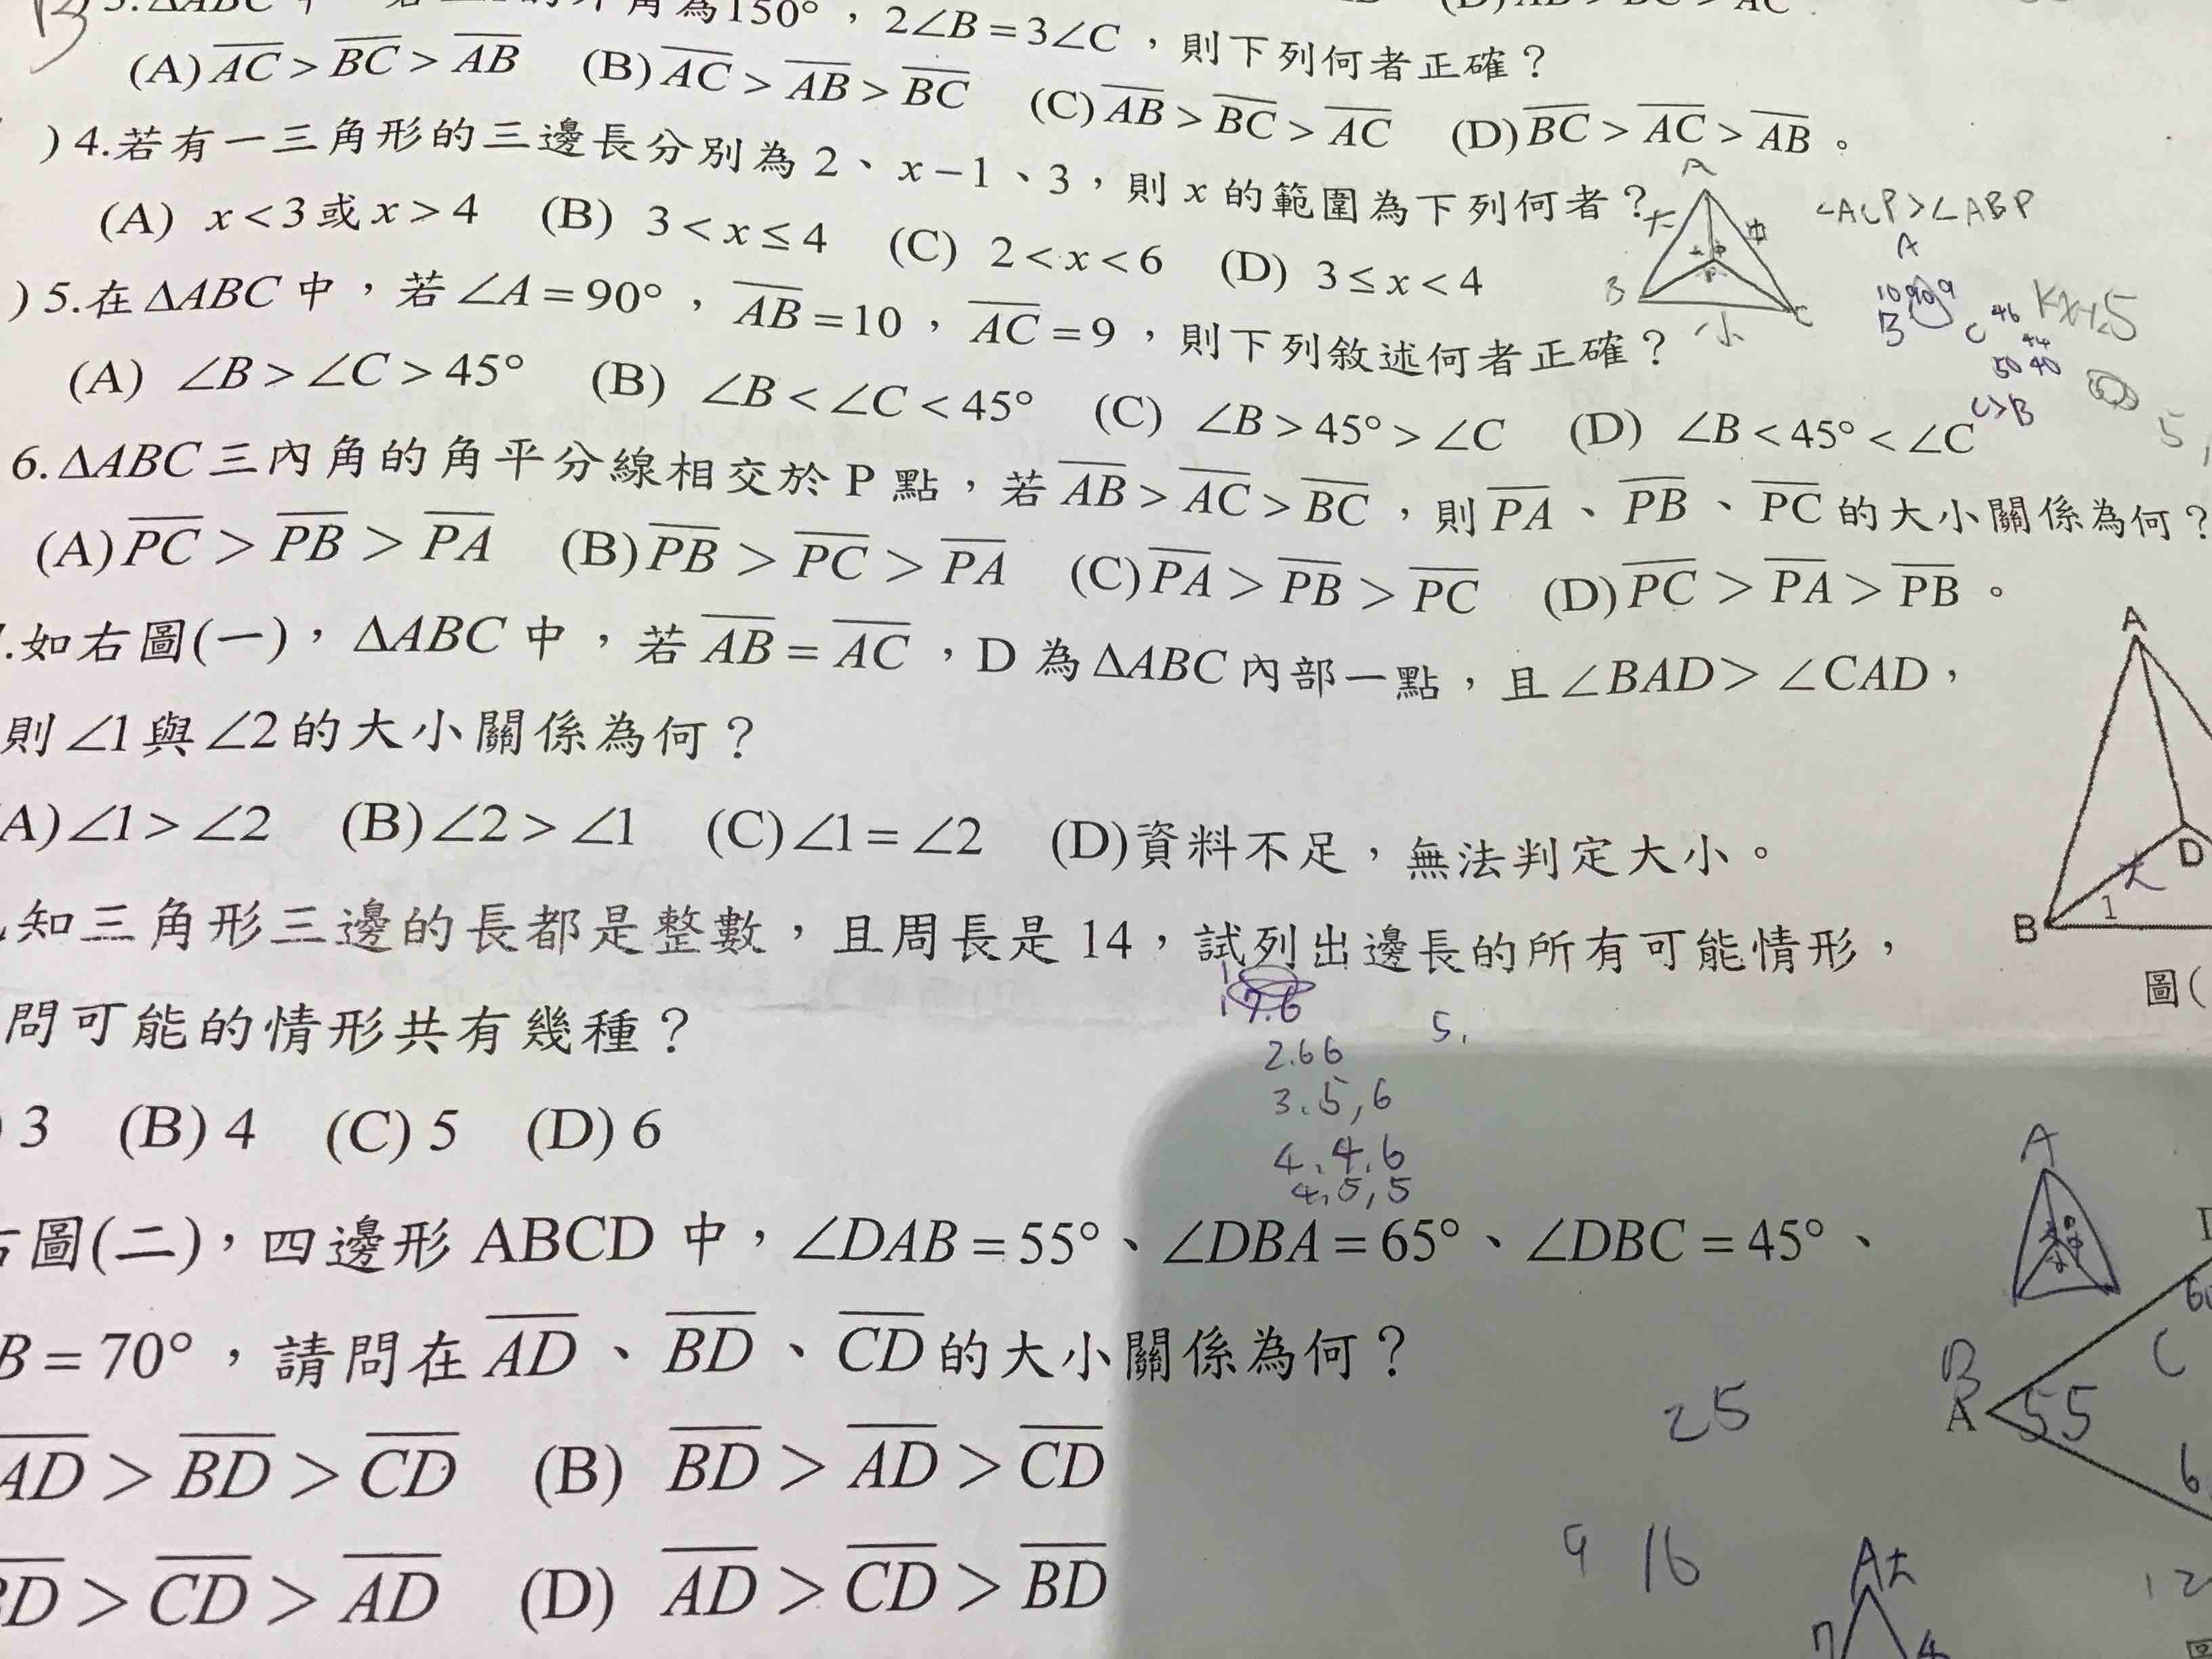 3.ΔABC 中，若 的外角為150°，2∠B=3∠C，則下列何者正確？
(A)AC>BC>AB (B)AC>AB>BC (C)AB>BC>AC (D)BC>AC>AB。
)4.若有一三角形的三邊長分別為 2、x-1、3，則 x 的範圍為下列何者？
(A) x<3或x>4 (B) 3<x≤4 (C) 2<x<6 (D) 3≤x<4
)5.在ΔABC中，若∠A=90°，AB=10，AC=9，則下列敘述何者正確？
(A) ∠B>∠C>45° (B) ∠B<∠C<45° (C) ∠B>45°>∠C (D) ∠B<45°<∠C
6.ΔABC三內角的角平分線相交於 P 點，若AB>AC>BC，則PA、PB、PC的大小關係為何？
(A)PC>PB>PA (B)PB>PC>PA (C)PA>PB>PC (D)PC>PA>PB。
.如右圖(一)，ΔABC中，若AB=AC，D 為ΔABC內部一點，且∠BAD>∠CAD，
則∠1與∠2的大小關係為何？
A)∠1>∠2 (B)∠2>∠1 (C)∠1=∠2 (D)資料不足，無法判定大小。
知三角形三邊的長都是整數，且周長是 14，試列出邊長的所有可能情形，
問可能的情形共有幾種？
3 (B) 4 (C) 5 (D) 6
圖(二)，四邊形 ABCD 中，∠DAB=55°、∠DBA=65°、∠DBC=45°、
B=70°，請問在AD、BD、CD的大小關係為何？
AD>BD>CD (B) BD>AD>CD
BD>CD>AD (D) AD>CD>BD
B
A
大
中
B
小
C
∠ACP>∠ABP
A
10 90 9
B
C
46
44
50 40
C>B
5,
A
D
大
B
1
圖(
7.6
2.66
3.5,6
4.4.6
4.5,5
5,
A
B
C
A
55
25
9 16
A大
7
4
12